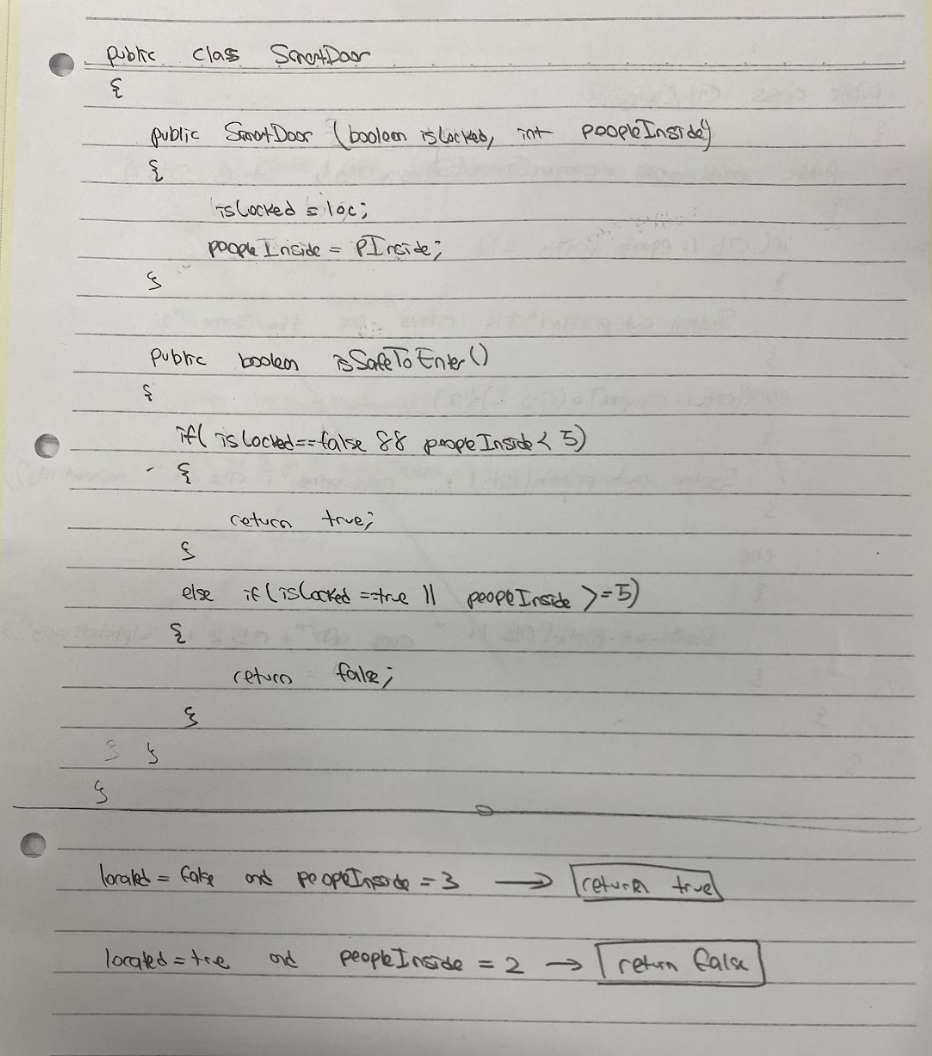 public class SmartDoor
{
public SmartDoor (boolean isLocked, int peopleInside)
{
isLocked = loc;
peopleInside = PInside;
}
public boolean isSafeToEnter()
{
if( isLocked==false && peopleInside < 5)
{
return true;
}
else if(isLocked ==true || peopleInside >=5)
{
return false;
}
} }
}
locked = false and peopleInside = 3 → return true
locked = true and peopleInside = 2 → return false